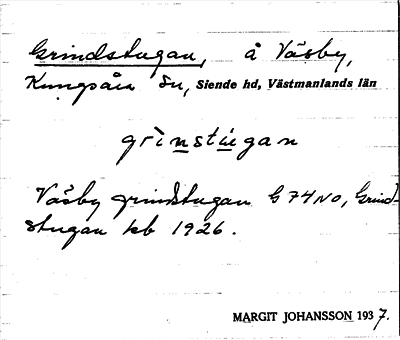 Grindstugan, å Väsby,
Kungsåra sn, Siende hd, Västmanlands län
grinstugan
Väsby grindstugan G 74 NO, Grind-
stugan kb 1926.
MARGIT JOHANSSON 1937.